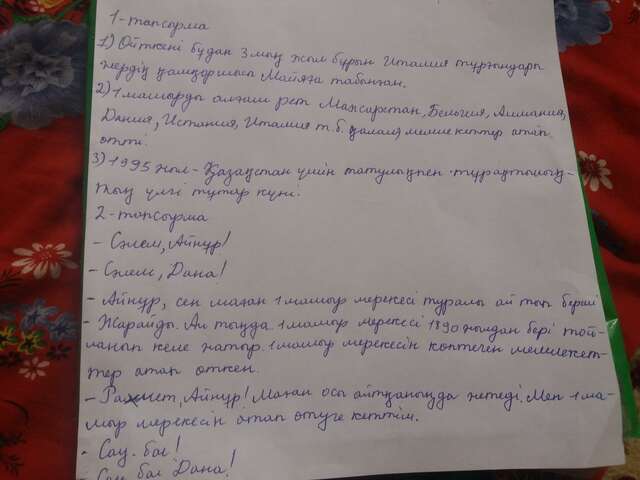 1-тапсырма
1) Өйткені бұдан 3 мың жыл бұрын Италия тұрғындары
жердің қамқоршысы Майяға табынған.
2) 1 мамырды алғаш рет Мажарстан, Бельгия, Алмания,
Дания, Испания, Италия т.б. қалалар мемлекеттер атап
өтті.
3) 1995 жыл - Қазақстан үшін татулықпен тұрақтылық-
тың үлгі тұтар күні.
2-тапсырма
- Сәлем, Айнұр!
- Сәлем, Дана!
- Айнұр, сен маған 1 мамыр мерекесі туралы айтып берші
- Жарайды. Ал тыңда. 1 мамыр мерекесі 1890 жылдан бері той-
ланып келе жатыр. 1 мамыр мерекесін көптеген мемлекет-
тер атап өткен.
- Рахмет, Айнұр! Маған осы айтқаныңда жетеді. Мен 1 ма-
мыр мерекесін атап өтуге кеттім.
- Сау. бол!
- Сау бол Дана!